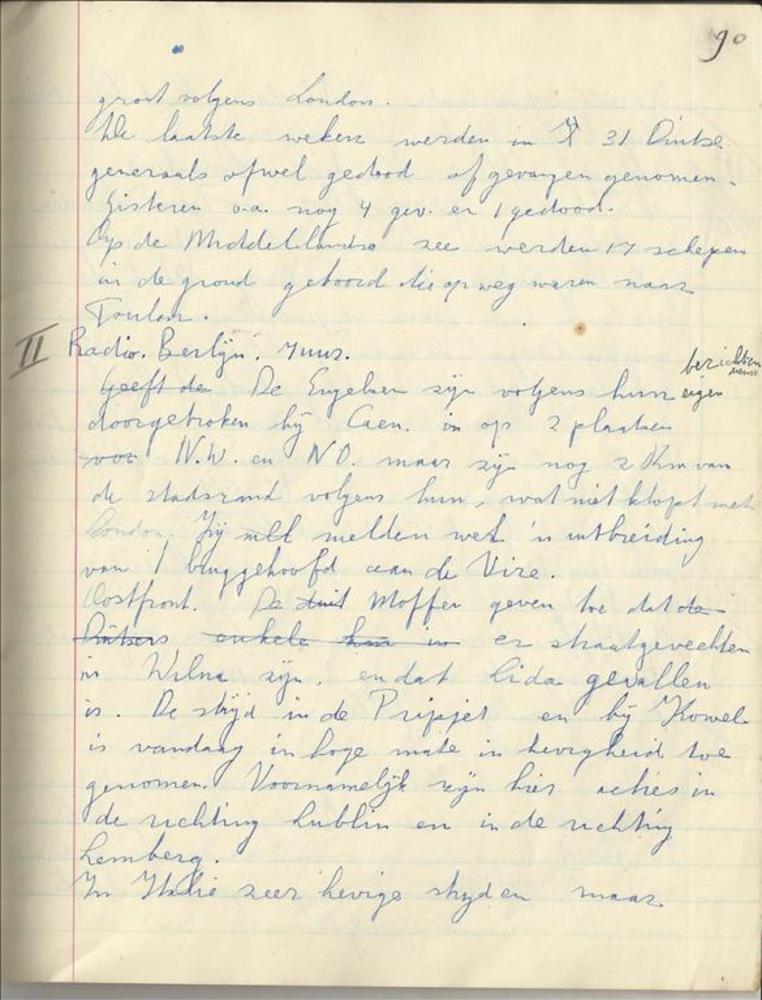 90
groot volgens London.
De laatste weken werden in 31 Duitse
generaals ofwel gedood of gevangen genomen.
Gisteren o.a. nog 4 gev. en 1 gedood.
Op de Middellandse zee werden 17 schepen
in de grond geboord die op weg waren naar
Toulon.
II Radio. Berlijn. 7 uur.
berichten
Geeft de De Engelsen zijn volgens hun eigen
doorgebroken bij Caen. in op 2 plaatsen
voor N.W. en NO. maar zijn nog 2 Km van
de stadsrand volgens hun, wat niet klopt met
London. Zij melden wel 'n uitbreiding
van 1 bruggehoofd aan de Vire.
Oostfront. De duit Moffen geven toe dat de
Duitsers enkele km in er straatgevechten
in Wilna zijn. en dat Lida gevallen
is. De strijd in de Pripjet en bij Kowel
is vandaag in hoge mate in hevigheid toe
genomen. Voornamelijk zijn hier acties in
de richting Lublin en in de richting
Lemberg.
In Italie zeer hevige strijd en maar